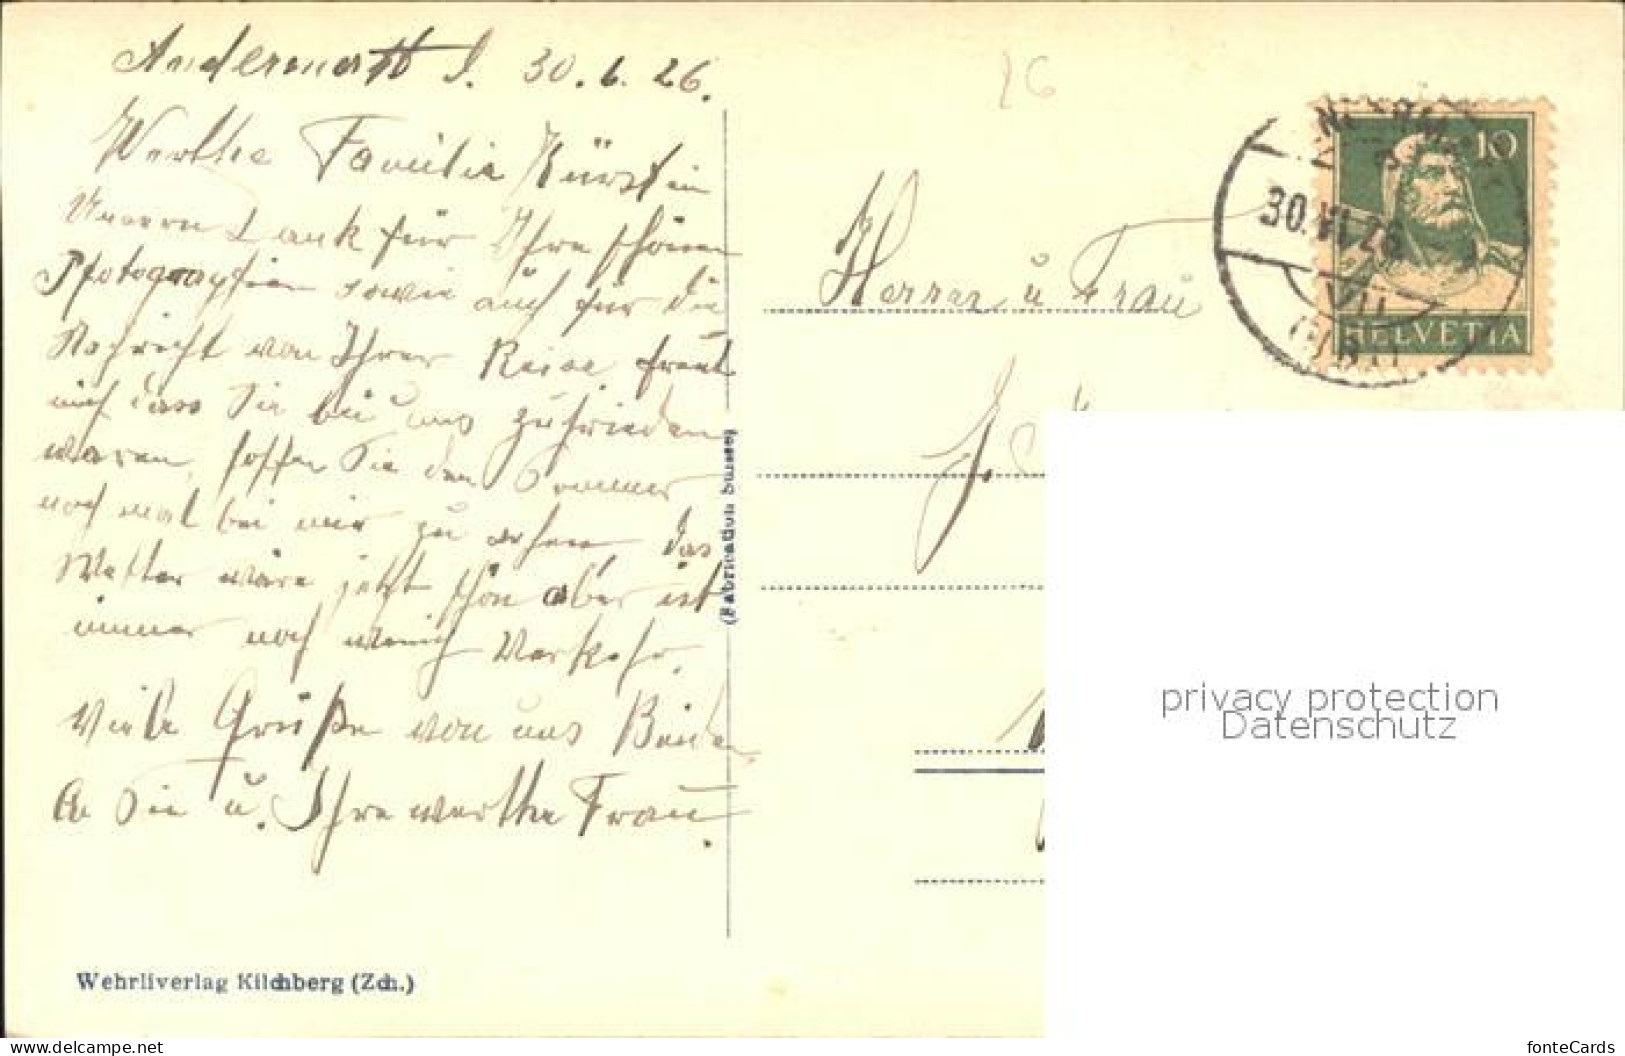 Andermatt d. 30.6.26.
Werthe Familie
Unsern Dank für Ihre schönen
Photographien sowie auch für die
Nachricht von Ihrer Reise freut
mich dass Sie bei uns zufrieden
waren, hoffen Sie den Sommer
noch mal bei mir zu sehen, das
Wetter wäre jetzt schön aber ist
immer noch wenich Verkehr.
Viele Grüße von uns Beiden
a Sie u. Ihre werthe Frau.
Wehrliverlag Kilchberg (Zch.)
(Fabrication Suisse)
26
Herrn u Frau
J.
10
HELVETIA
30.VI.26
VII
(URI)
privacy protection
Datenschutz
www.delcampe.net
fonteCards